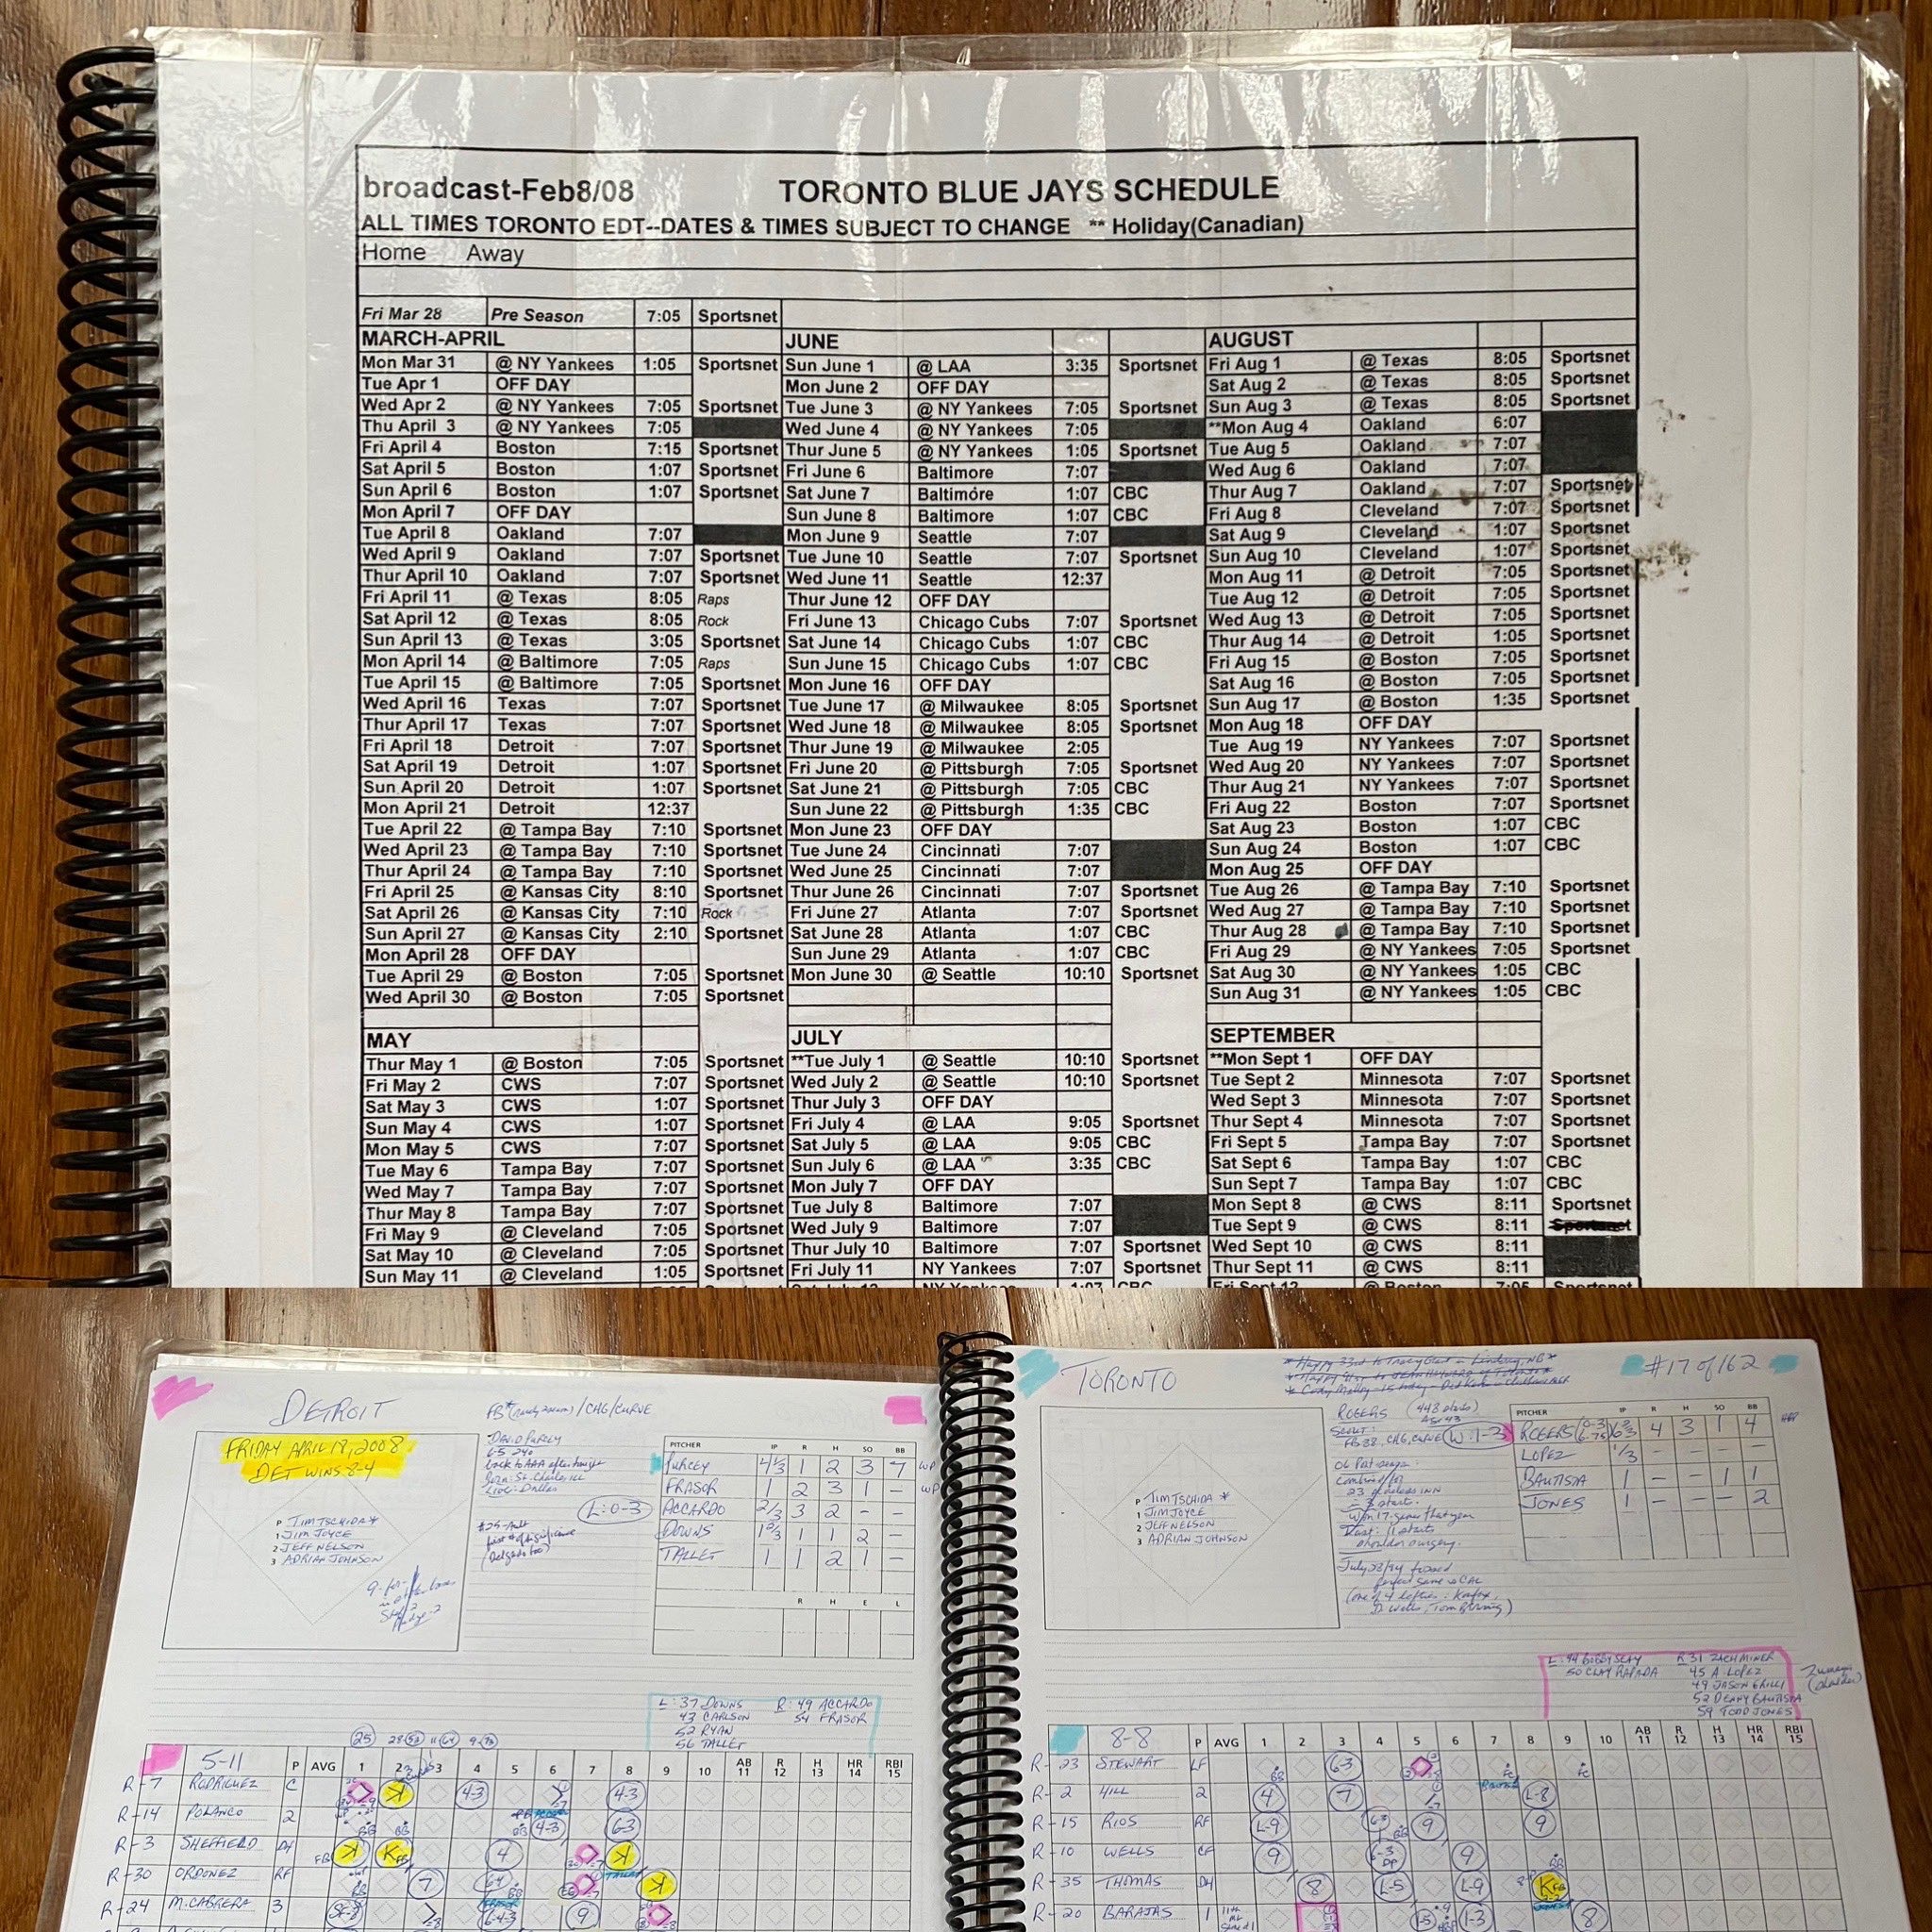 broadcast-Feb8/08 TORONTO BLUE JAYS SCHEDULE
ALL TIMES TORONTO EDT--DATES & TIMES SUBJECT TO CHANGE ** Holiday(Canadian)
Home Away
Fri Mar 28 Pre Season 7:05 Sportsnet
MARCH-APRIL JUNE AUGUST
Mon Mar 31 @ NY Yankees 1:05 Sportsnet Sun June 1 @ LAA 3:35 Sportsnet Fri Aug 1 @ Texas 8:05 Sportsnet
Tue Apr 1 OFF DAY Mon June 2 OFF DAY Sat Aug 2 @ Texas 8:05 Sportsnet
Wed Apr 2 @ NY Yankees 7:05 Sportsnet Tue June 3 @ NY Yankees 7:05 Sportsnet Sun Aug 3 @ Texas 8:05 Sportsnet
Thu April 3 @ NY Yankees 7:05 Wed June 4 @ NY Yankees 7:05 **Mon Aug 4 Oakland 6:07
Fri April 4 Boston 7:15 Sportsnet Thur June 5 @ NY Yankees 1:05 Sportsnet Tue Aug 5 Oakland 7:07
Sat April 5 Boston 1:07 Sportsnet Fri June 6 Baltimore 7:07 Wed Aug 6 Oakland 7:07
Sun April 6 Boston 1:07 Sportsnet Sat June 7 Baltimore 1:07 CBC Thur Aug 7 Oakland 7:07 Sportsnet
Mon April 7 OFF DAY Sun June 8 Baltimore 1:07 CBC Fri Aug 8 Cleveland 7:07 Sportsnet
Tue April 8 Oakland 7:07 Mon June 9 Seattle 7:07 Sat Aug 9 Cleveland 1:07 Sportsnet
Wed April 9 Oakland 7:07 Sportsnet Tue June 10 Seattle 7:07 Sportsnet Sun Aug 10 Cleveland 1:07 Sportsnet
Thur April 10 Oakland 7:07 Sportsnet Wed June 11 Seattle 12:37 Mon Aug 11 @ Detroit 7:05 Sportsnet
Fri April 11 @ Texas 8:05 Raps Thur June 12 OFF DAY Tue Aug 12 @ Detroit 7:05 Sportsnet
Sat April 12 @ Texas 8:05 Rock Fri June 13 Chicago Cubs 7:07 Sportsnet Wed Aug 13 @ Detroit 7:05 Sportsnet
Sun April 13 @ Texas 3:05 Sportsnet Sat June 14 Chicago Cubs 1:07 CBC Thur Aug 14 @ Detroit 1:05 Sportsnet
Mon April 14 @ Baltimore 7:05 Raps Sun June 15 Chicago Cubs 1:07 CBC Fri Aug 15 @ Boston 7:05 Sportsnet
Tue April 15 @ Baltimore 7:05 Sportsnet Mon June 16 OFF DAY Sat Aug 16 @ Boston 7:05 Sportsnet
Wed April 16 Texas 7:07 Sportsnet Tue June 17 @ Milwaukee 8:05 Sportsnet Sun Aug 17 @ Boston 1:35 Sportsnet
Thur April 17 Texas 7:07 Sportsnet Wed June 18 @ Milwaukee 8:05 Sportsnet Mon Aug 18 OFF DAY
Fri April 18 Detroit 7:07 Sportsnet Thur June 19 @ Milwaukee 2:05 Tue Aug 19 NY Yankees 7:07 Sportsnet
Sat April 19 Detroit 1:07 Sportsnet Fri June 20 @ Pittsburgh 7:05 Sportsnet Wed Aug 20 NY Yankees 7:07 Sportsnet
Sun April 20 Detroit 1:07 Sportsnet Sat June 21 @ Pittsburgh 7:05 CBC Thur Aug 21 NY Yankees 7:07 Sportsnet
Mon April 21 Detroit 12:37 Sun June 22 @ Pittsburgh 1:35 CBC Fri Aug 22 Boston 7:07 Sportsnet
Tue April 22 @ Tampa Bay 7:10 Sportsnet Mon June 23 OFF DAY Sat Aug 23 Boston 1:07 CBC
Wed April 23 @ Tampa Bay 7:10 Sportsnet Tue June 24 Cincinnati 7:07 Sun Aug 24 Boston 1:07 CBC
Thur April 24 @ Tampa Bay 7:10 Sportsnet Wed June 25 Cincinnati 7:07 Mon Aug 25 OFF DAY
Fri April 25 @ Kansas City 8:10 Sportsnet Thur June 26 Cincinnati 7:07 Sportsnet Tue Aug 26 @ Tampa Bay 7:10 Sportsnet
Sat April 26 @ Kansas City 7:10 Rock Fri June 27 Atlanta 7:07 Sportsnet Wed Aug 27 @ Tampa Bay 7:10 Sportsnet
Sun April 27 @ Kansas City 2:10 Sportsnet Sat June 28 Atlanta 1:07 CBC Thur Aug 28 @ Tampa Bay 7:10 Sportsnet
Mon April 28 OFF DAY Sun June 29 Atlanta 1:07 CBC Fri Aug 29 @ NY Yankees 7:05 Sportsnet
Tue April 29 @ Boston 7:05 Sportsnet Mon June 30 @ Seattle 10:10 Sportsnet Sat Aug 30 @ NY Yankees 1:05 CBC
Wed April 30 @ Boston 7:05 Sportsnet Sun Aug 31 @ NY Yankees 1:05 CBC
MAY JULY SEPTEMBER
Thur May 1 @ Boston 7:05 Sportsnet **Tue July 1 @ Seattle 10:10 Sportsnet **Mon Sept 1 OFF DAY
Fri May 2 CWS 7:07 Sportsnet Wed July 2 @ Seattle 10:10 Sportsnet Tue Sept 2 Minnesota 7:07 Sportsnet
Sat May 3 CWS 1:07 Sportsnet Thur July 3 OFF DAY Wed Sept 3 Minnesota 7:07 Sportsnet
Sun May 4 CWS 1:07 Sportsnet Fri July 4 @ LAA 9:05 Sportsnet Thur Sept 4 Minnesota 7:07 Sportsnet
Mon May 5 CWS 7:07 Sportsnet Sat July 5 @ LAA 9:05 CBC Fri Sept 5 Tampa Bay 7:07 Sportsnet
Tue May 6 Tampa Bay 7:07 Sportsnet Sun July 6 @ LAA 3:35 CBC Sat Sept 6 Tampa Bay 1:07 CBC
Wed May 7 Tampa Bay 7:07 Sportsnet Mon July 7 OFF DAY Sun Sept 7 Tampa Bay 1:07 CBC
Thur May 8 Tampa Bay 7:07 Sportsnet Tue July 8 Baltimore 7:07 Mon Sept 8 @ CWS 8:11 Sportsnet
Fri May 9 @ Cleveland 7:05 Sportsnet Wed July 9 Baltimore 7:07 Tue Sept 9 @ CWS 8:11 Sportsnet
Sat May 10 @ Cleveland 7:05 Sportsnet Thur July 10 Baltimore 7:07 Sportsnet Wed Sept 10 @ CWS 8:11
Sun May 11 @ Cleveland 1:05 Sportsnet Fri July 11 NY Yankees 7:07 Sportsnet Thur Sept 11 @ CWS 8:11
DETROIT
FRIDAY APRIL 18, 2008
DET WINS 8-4
P TIM TSCHIDA *
1 JIM JOYCE
2 JEFF NELSON
3 ADRIAN JOHNSON
/CHG/CURVE
DAVID PURCEY
6-5 240
back to AAA after tonight
Born: St. Charles, Ill
Live: Dallas
L: 0-3
PITCHER IP R H SO BB
PURCEY 4 1/3 1 2 3 7 WP
FRASOR 1 2 3 1 - WP
ACCARDO 2/3 3 2 - -
DOWNS 1 2/3 1 1 2 -
TALLET 1 1 2 1 -
R H E L
L: 37 DOWNS R: 49 ACCARDO
43 CARLSON 54 FRASOR
52 RYAN
56 TALLET
5-11 P AVG 1 2 3 4 5 6 7 8 9 10 AB 11 R 12 H 13 HR 14 RBI 15
R-7 RODRIGUEZ C
R-14 POLANCO 2
R-3 SHEFFIELD DH
R-30 ORDONEZ RF
R-24 M. CABRERA 3
TORONTO
#17 of 162
P TIM TSCHIDA *
1 JIM JOYCE
2 JEFF NELSON
3 ADRIAN JOHNSON
ROGERS (448 starts)
Age 43
SCOUT:
FB 88, CHG, CURVE W: 1-3
06 Post-season:
combined for
23 scoreless INN
in 3 starts.
Won 17 games that year
Last: 11 starts
shoulder surgery.
July 28/94 tossed
perfect game vs CAL
(one of 4 lefties - Koufax,
D. Wells, Tom Browning)
PITCHER IP R H SO BB
ROGERS 6 2/3 4 3 1 4
LOPEZ 1/3 - - - -
BAUTISTA 1 - - 1 1
JONES 1 - - - 2
L: 44 BOBBY SEAY R 31 ZACH MINER
50 CLAY RAPADA 45 A. LOPEZ
49 JASON GRILLI
52 DENNY BAUTISTA
59 TODD JONES
8-8 P AVG 1 2 3 4 5 6 7 8 9 10 AB 11 R 12 H 13 HR 14 RBI 15
R-23 STEWART LF
R-2 HILL 2
R-15 RIOS RF
R-10 WELLS CF
R-35 THOMAS DH
R-20 BARAJAS 1